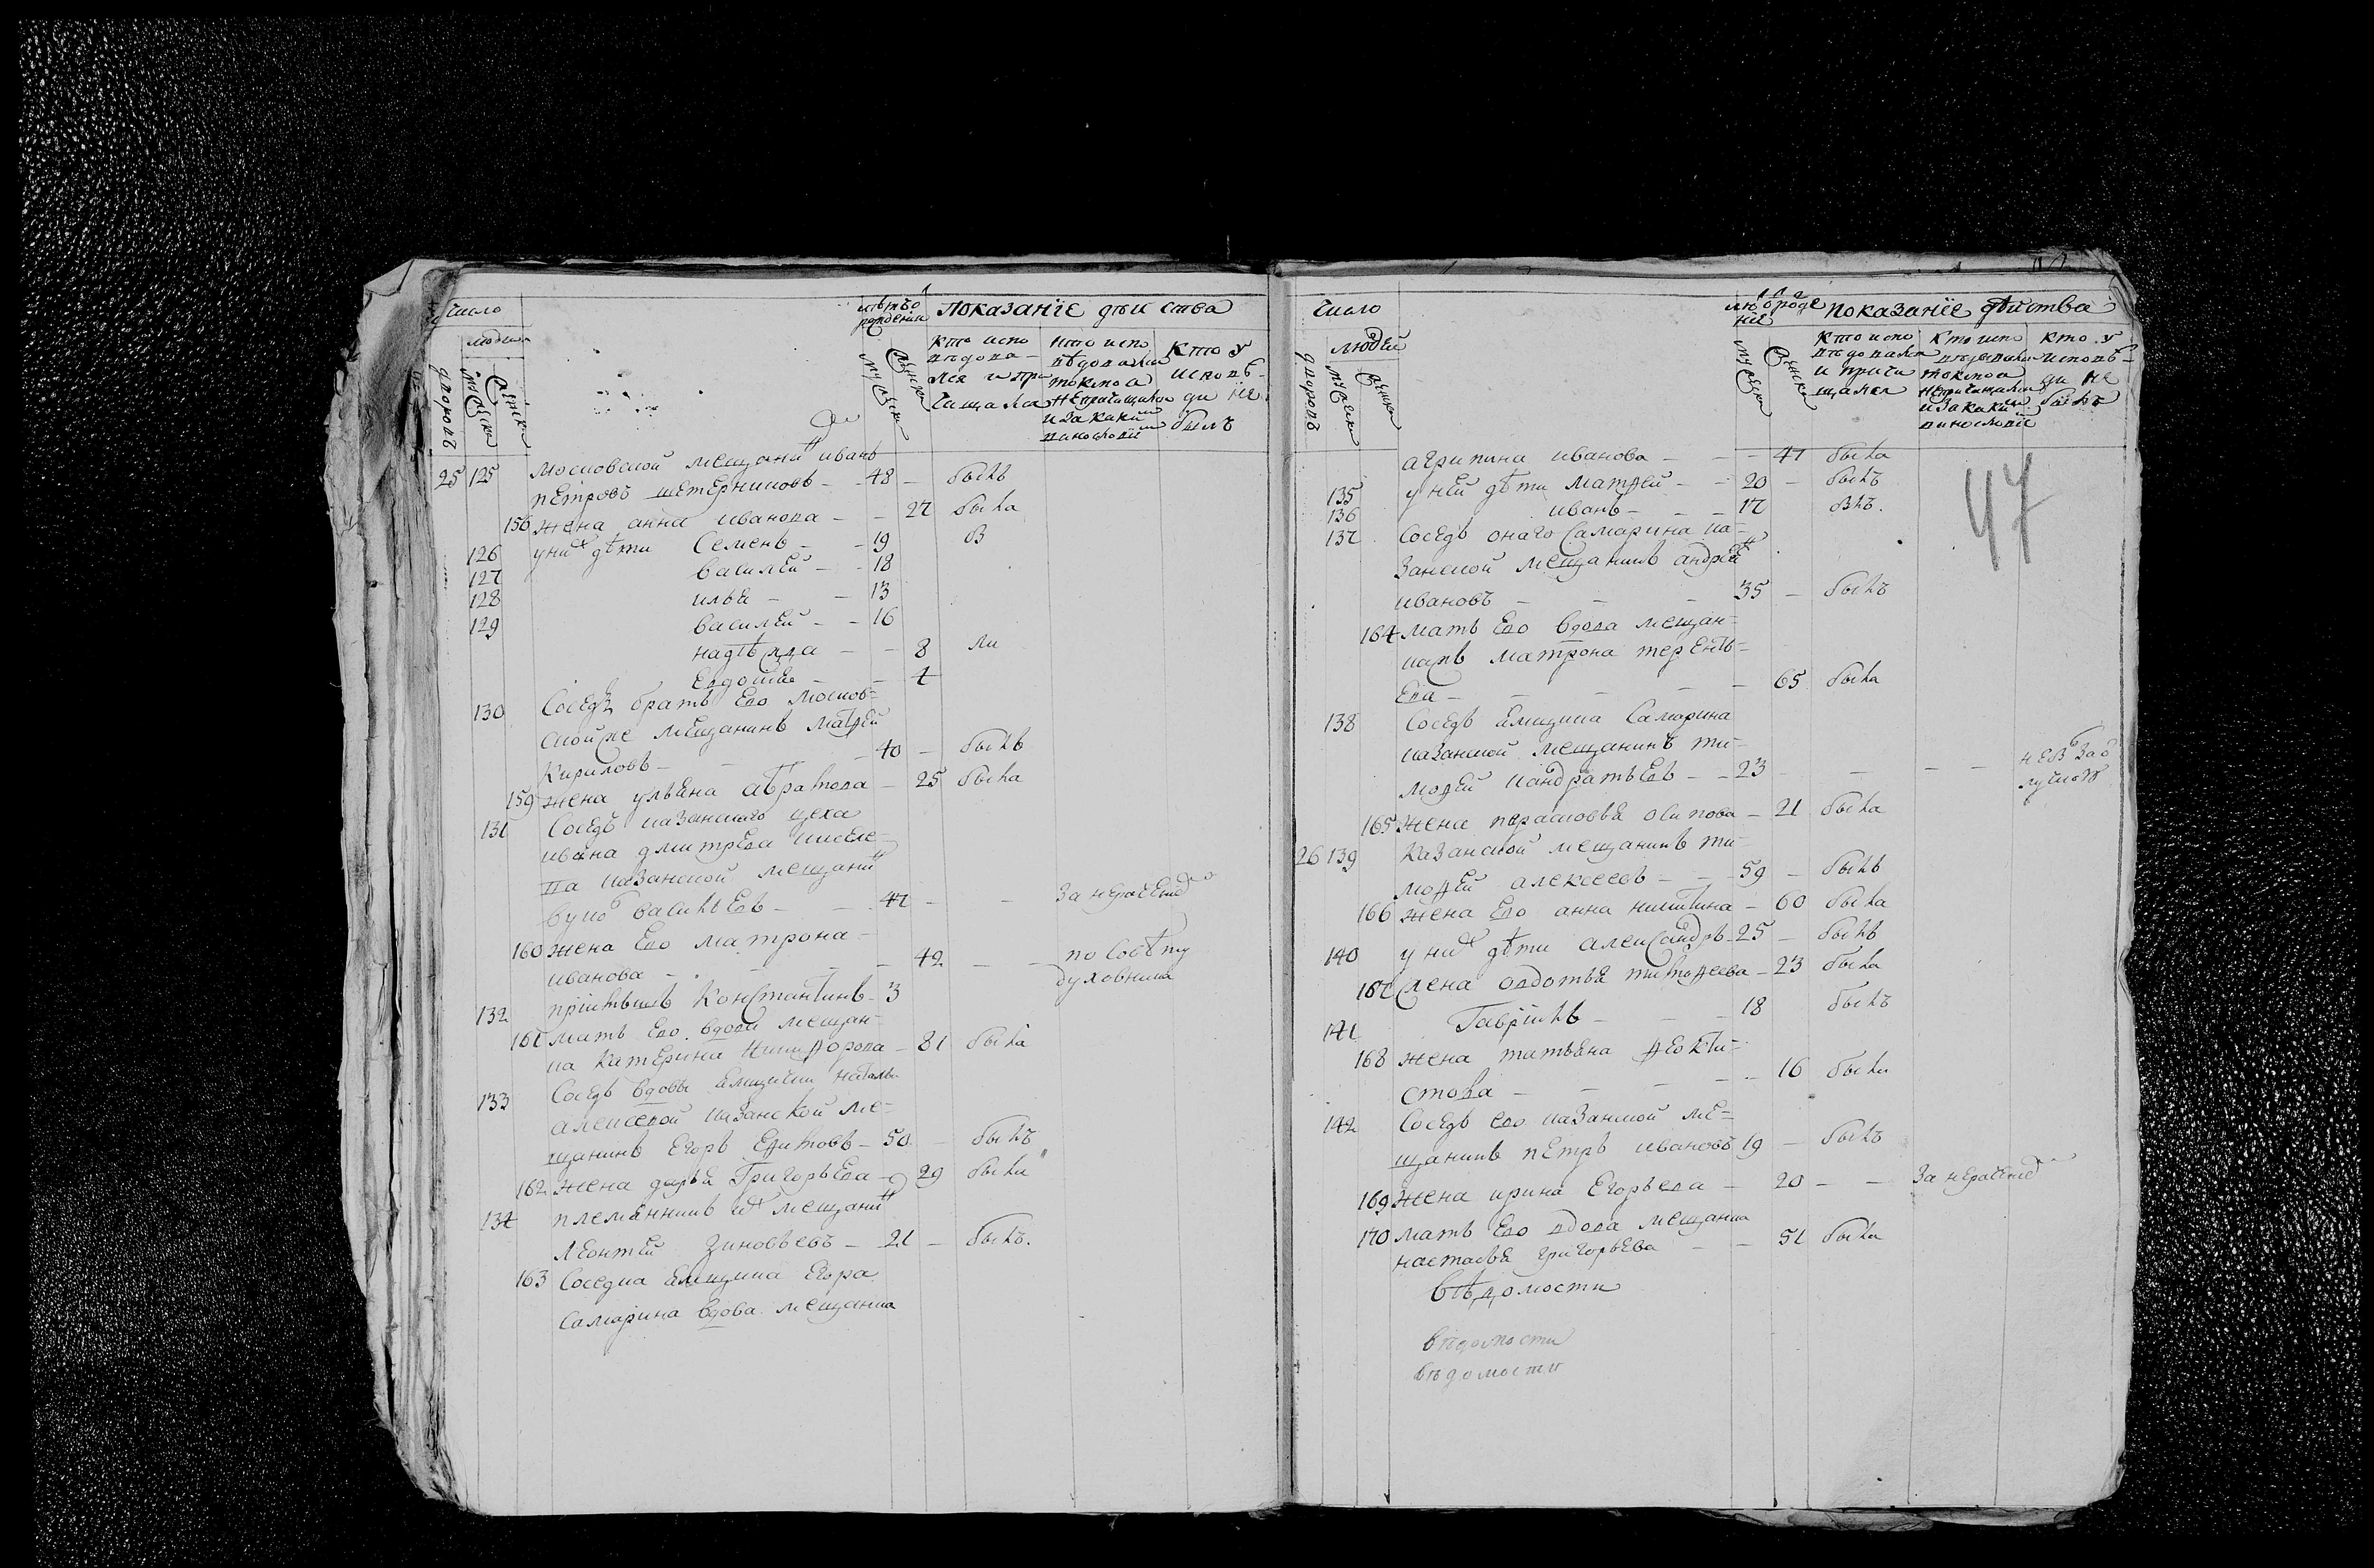 Число
людей
дворовъ
мужска
женска
лѣтъ о
рождении
мужска
женска
Показание дѣиства
Кто испо
вѣдова-
лся и при
чащался
Кто испо
вѣдовался
токмо а
не причащался
и за какимъ
винословіемъ
Кто у
исповѣ-
ди не
былъ
25 125 московской мещанинъ иванъ
петровъ щетерниковъ - 48 - былъ
156 жена анна иванова - - 27 была
126 у них дѣти Семенъ - 19 в
127 василей - - 18
128 илья - - 13
129 василей - - 16
надѣжда - - 8 ли
Евдокия - - 4
130 Соседъ братъ Ево москов=
скойже мещанинъ матѳей
Кириловъ - - - 40 - былъ
159 жена ульяна авраамова - 25 была
131 Соседъ казанскаго цеха
ивана дмитрева киселе=
ва казанской мещанинъ
вуколъ васильевъ - - 47 - - за нерачениемъ
160 жена Ево матрона
иванова - - - - 42 - - по совѣту
духовника
132 пріимышъ Константинъ - 3
161 мать Ево вдова мещан=
ка Катерина никифорова - 81 была
133 Соседъ вдовы ямщички натальи
алексеевой казанской ме=
щанинъ Егоръ Ефимовъ - 50 - былъ
162 жена дарья Григорьева - 29 была
134 племянникъ их мещанинъ
леонтей зиновьевъ - 21 - былъ.
163 Соседка ямщика Егора
Самарина вдова мещанка
Число
людей
дворовъ
мужска
женска
лѣтъ о рожде
ніе
мужска
женска
показаніе дѣйства
Кто испо
вѣдовался
и прича
щался
Кто испо
вѣдовался
токмо а
не причащался
и за какимъ
винословіе
Кто у
исповѣ-
ди не
былъ
агрипина иванова - - - 47 была
135 у ней дѣти матѳей - - 20 - былъ
136 иванъ - - - 17 влъ.
137 Соседъ онаго Самарина ка=
занской мещанинъ андрей
ивановъ - - - 35 - былъ
164 мать Ево вдова мещан=
каяъ матрона теренть=
Ева - - - - - 65 была
138 Соседъ ямщика Самарина
казанской мещанинъ ти=
моѳей кандратьевъ - - 23 - - -
165 жена парасковья осипова - 21 была
26 139 Казанской мещанинъ ти=
моѳей алексеевъ - - 59 - былъ
166 жена Ево анна никитина - 60 была
140 у них дѣти александръ - 25 - былъ
167 жена авдотья тимоѳеева - 23 была
141 Гаврилъ - - - 18 былъ
168 жена татьяна ѳеокти=
стова - - - - 16 была
142 Соседъ ево казанской ме=
щанинъ петръ ивановъ 19 - былъ
169 жена ирина Егорьева - 20 - - за нерачениемъ
170 мать Ево вдова мещанка
настасья григорьева - - 51 была
вѣдомости
вѣдомости
вѣдомости
47